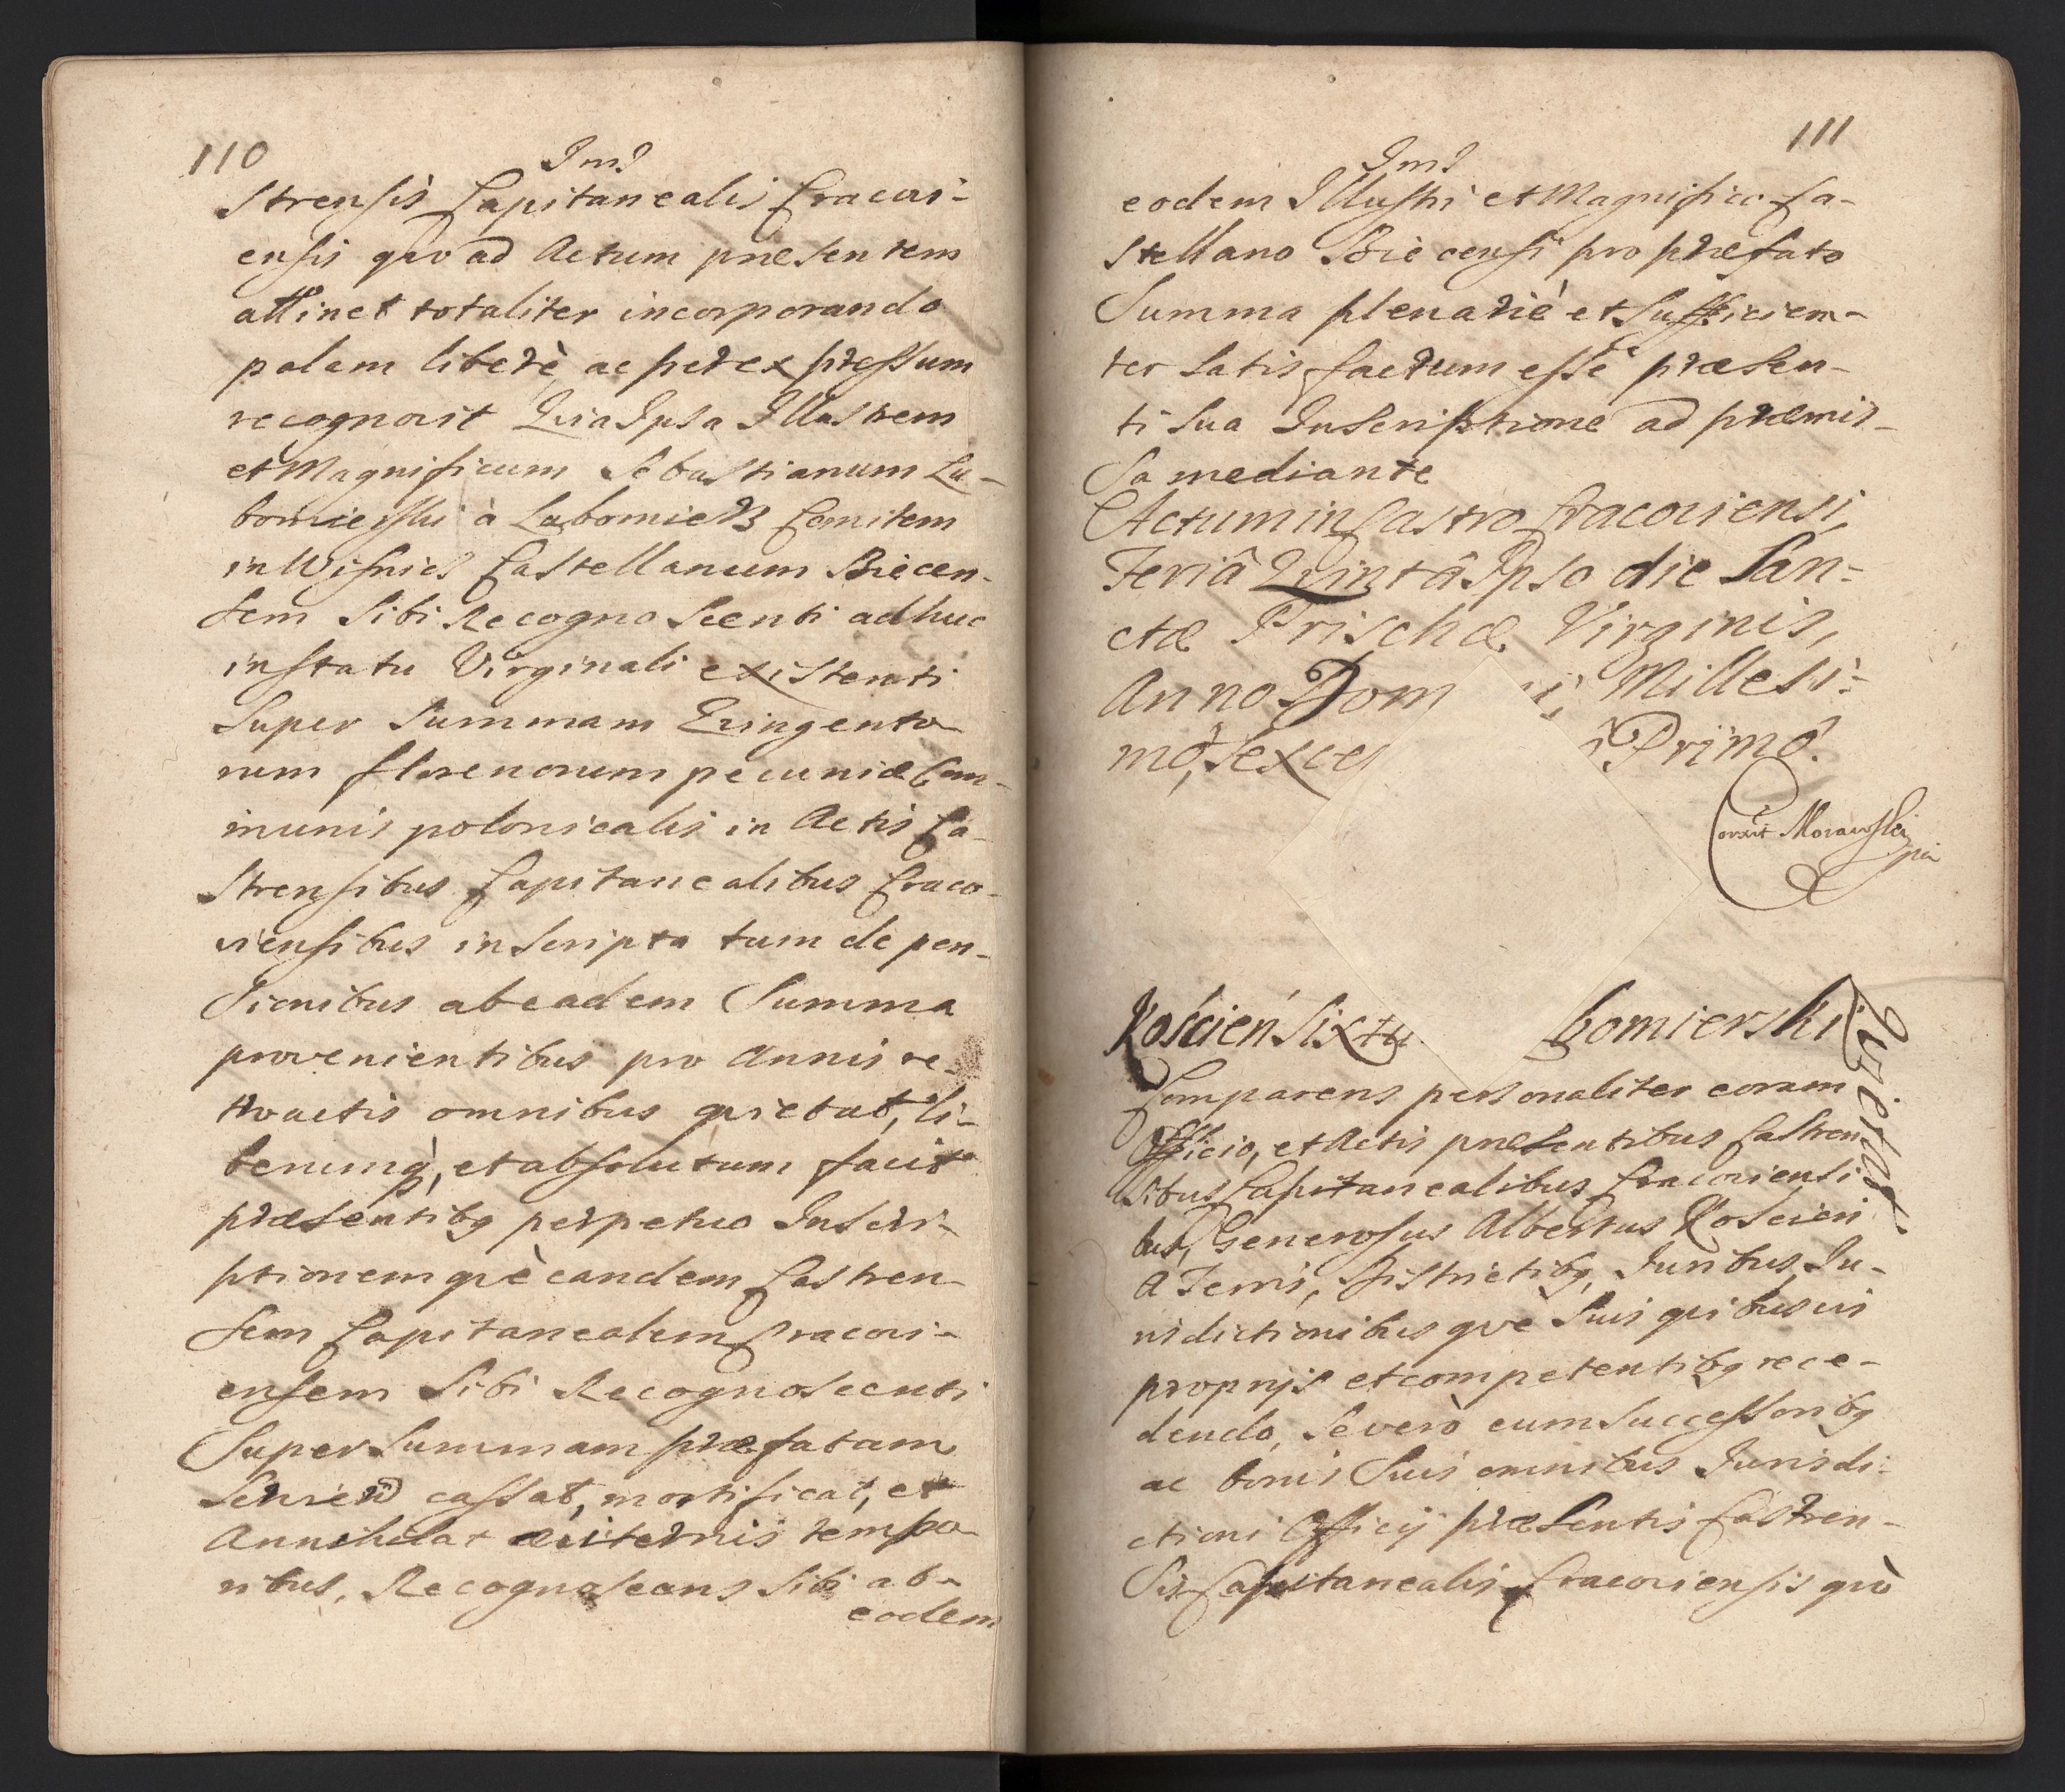 110
Im?
strensis Capitanealis Cracovi-
ensis quo ad Actum præsentem
attinet totaliter incorporando
palam liberè ac per expressum
recognovit Quia Ipsa Illustrem
et Magnificum Sebastianum Lu-
bomierski à Lubomierz Comitem
in Wisnicz Castellanum Biecen-
sem Sibi Recognoscenti adhuc
in statu Virginali existenti
Super Summam Quingento
rum florenorum pecuniæ Com-
munis polonicalis in Actis Ca-
strensibus Capitanealibus Craco-
viensibus inscripta tum de pen-
sionibus ab eadem Summa
provenientibus pro Annis re-
troactis omnibus quietat, li-
berumq, et absolutum facit
præsentibq perpetuo Inscri-
ptionem què eandem Castren-
sem Capitanealem Cracovi-
ensem Sibi Recognoscenti
Super Summam præfatam
cassat, mortificat, et
Annihilat æviternis tempo-
ribus, Recognoscens Sibi ab-
eodem
111
Im?
eodem Illustri et Magnifico Ca-
stellano Biecensi pro præfato
Summa plenariè et Sufficien-
ter Satis factum esse præsen-
ti Sua Inscriptione ad præmis-
sa mediante
Actum in Castro Cracoviensi,
Feriâ Quintâ Ipso die San=
ctæ Prischæ Virginis,
Anno Dom i, Millesi=
mô, Sexce Primô.
Corexit Morawski
Koścień Sixtu bomierski
Quietat
Comparens personaliter coram
Officio, et Actis præsentibus Castren
sibus Capitanealibus Cracoviensi
bus, Generosus Albertus Koscien
A Terris, Districtibq, Juribus, Ju-
risdictionibus què Suis quibusvis
proprijs et competentibq rece-
dendo, Se verò cum successoribq
ac bonis Suis omnibus Jurisdi-
ctioni Officij præsentis Castren-
Sis Capitanealis Cracoviensis quò